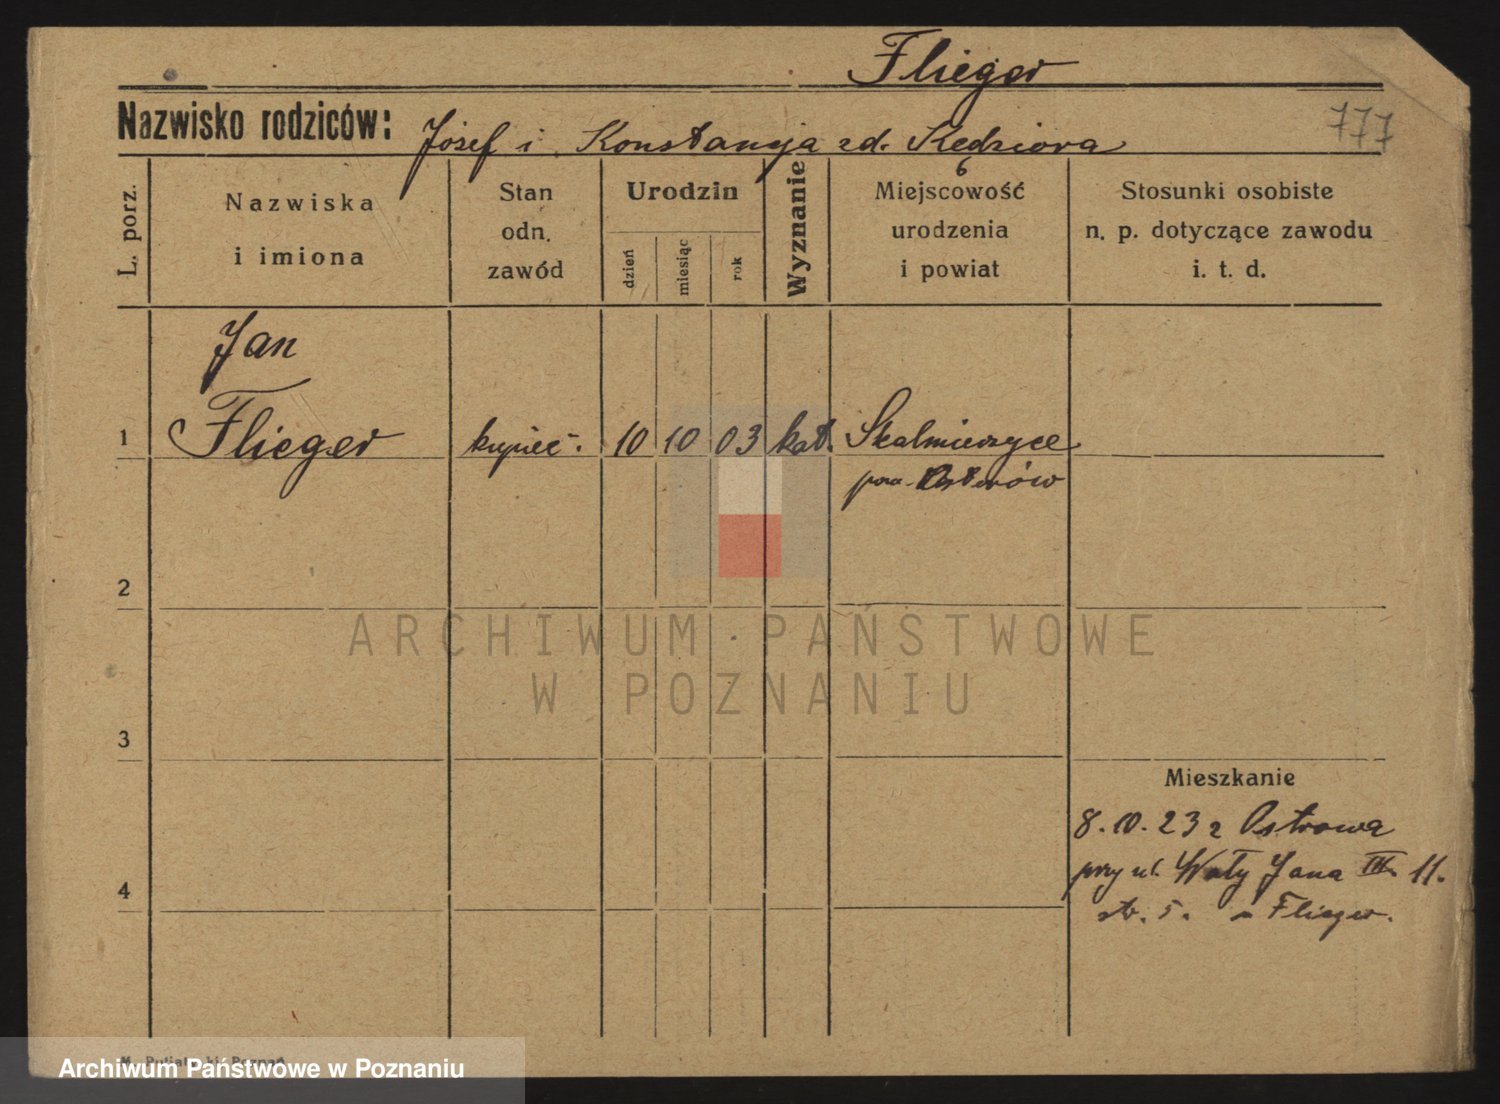 Flieger
Nazwisko rodziców: Józef i Konstancja zd. Kędziora
777
L. porz.
Nazwiska
i imiona
Stan
odn.
zawód
Urodzin
dzień
miesiąc
rok
Wyznanie
Miejscowość
urodzenia
i powiat
Stosunki osobiste
n. p. dotyczące zawodu
i. t. d.
Jan
1 Flieger kupiec. 10 10 03 kat. Skalmierzyce
pow. Ostrów
2
ARCHIWUM PAŃSTWOWE
W POZNANIU
3
Mieszkanie
8.10.23 z Ostrowa
przy ul. Wały Jana III 11.
4
str. 5. Flieger.
M. Putiatycki, Poznań
Archiwum Państwowe w Poznaniu